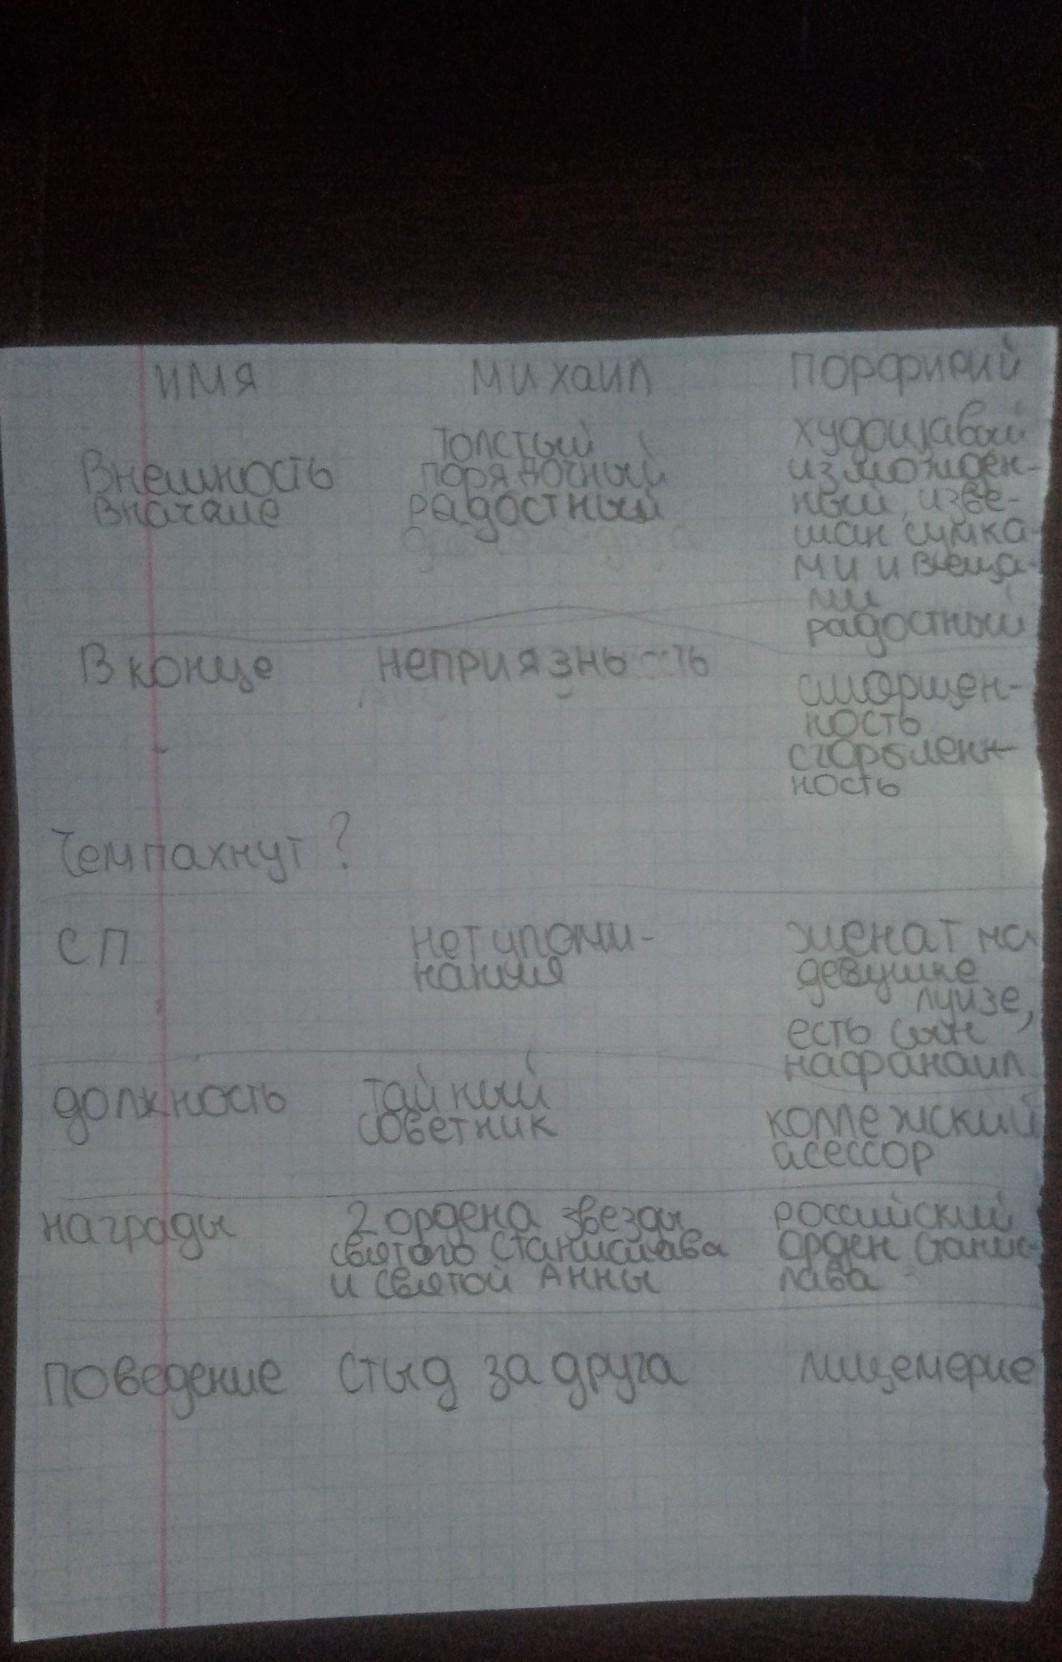 имя михаил порфирий
Внешность вначале толстый порядочный радостный худощавый изможден-
ный, изве-
шан сумка-
ми и веща-
ми
радостный
В конце неприязнь сморщен-
ность
сгорблен-
ность
Чем пахнут?
СП нет упоми-
нания женат на
девушке
луизе,
есть сын
нафанаил
должность тайный
советник коллежский
асессор
награды 2 ордена звезды
святого Станислава
и святой Анны российский
орден Станис-
лава
поведение стыд за друга лицемерие